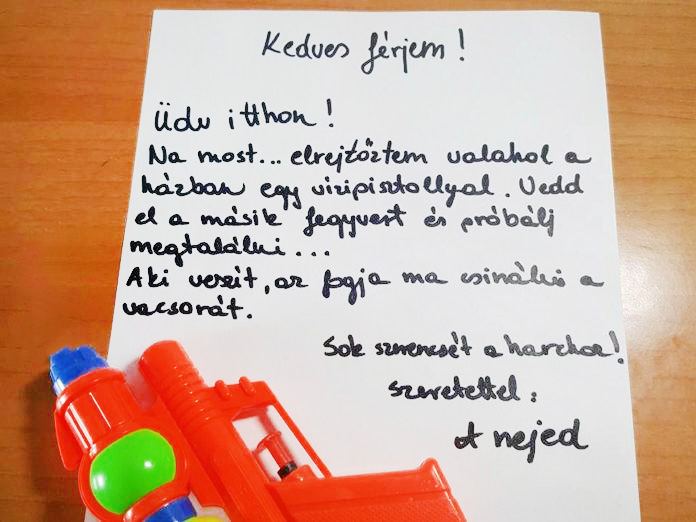 Kedves férjem!
Üdv itthon!
Na most... elrejtőztem valahol a
házban egy vizipisztollyal. Vedd
el a másik fegyvert és próbálj
megtalálni...
Aki veszít, az fogja ma csinálni a
vacsorát.
Sok szerencsét a harchoz!
Szeretettel:
A nejed